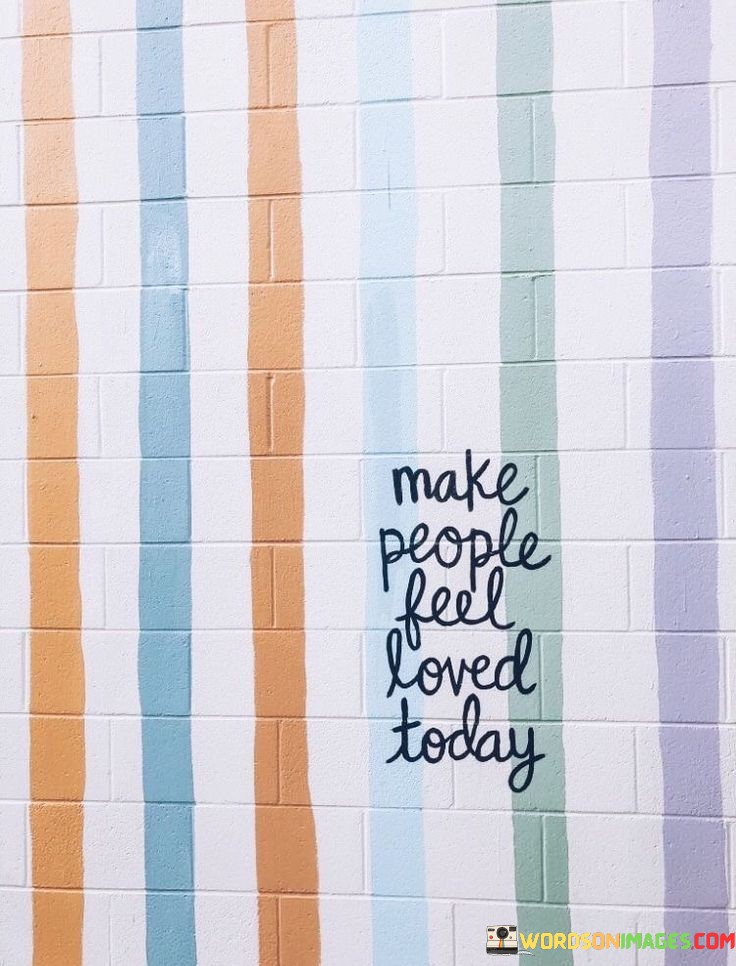 make
people
feel
loved
today
WORDSONIMAGES.COM